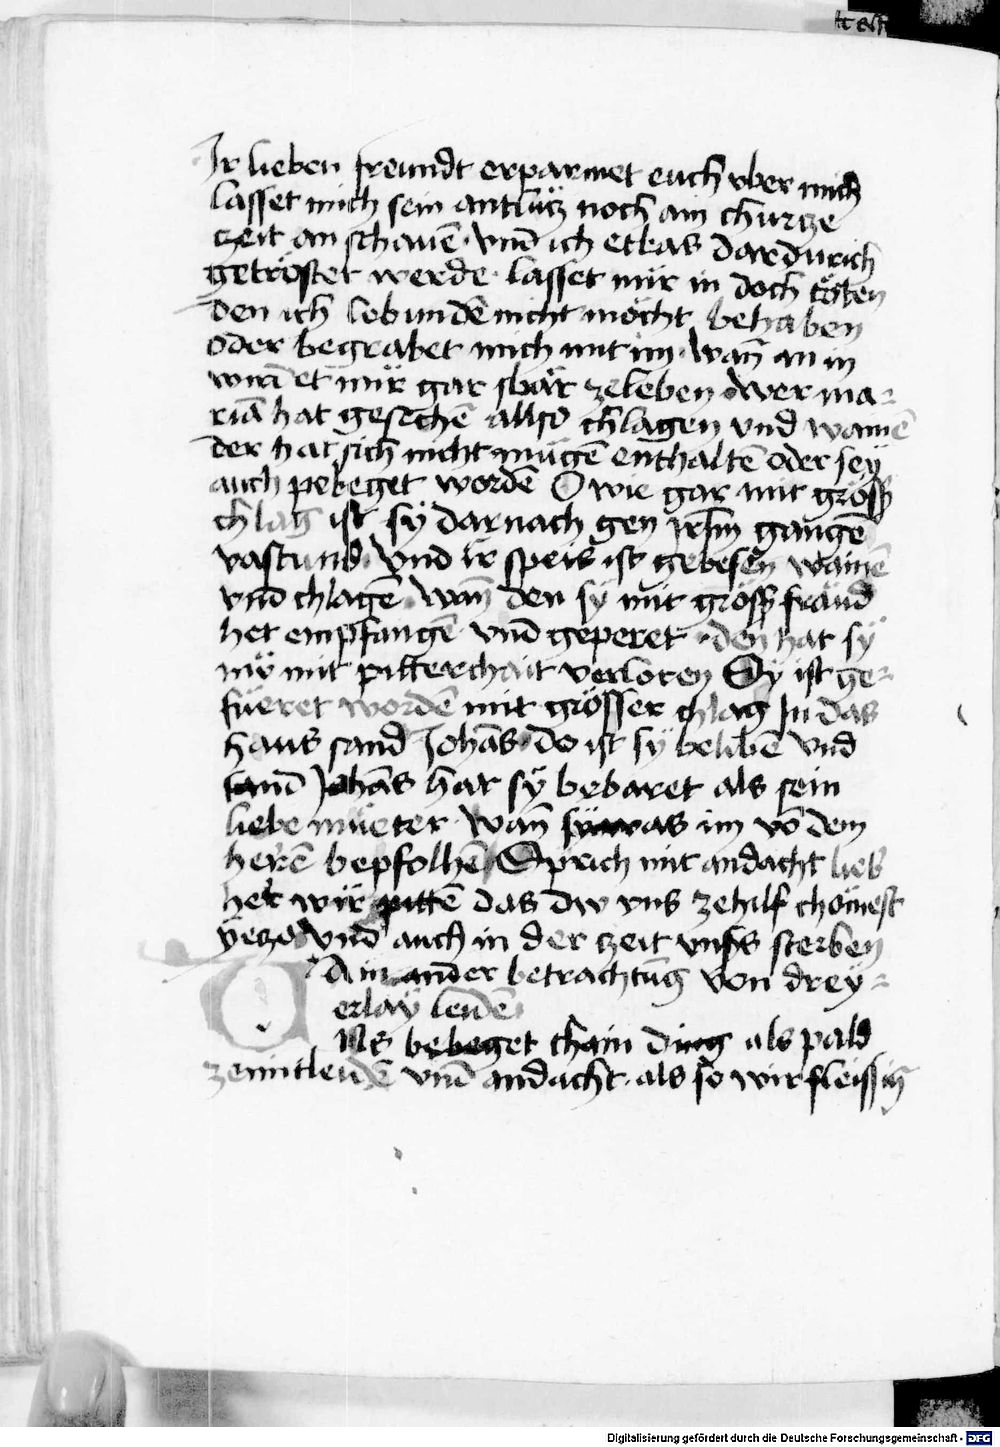 Ir lieben freundt erparmet euch vber mich
lasset mich sein antlütz noch ain churtze
zeit an schauē · vnd ich etbas dardurich
getröstet werde · lasset mir in doch töten
den ich lebundē nicht möcht behaben
oder begrabet mich mit im · wan̄ an in
wirt et mir gar sbär zeleben · wer ma-
riā hat gesechē allso chlagen vnd wainē
der hat sich nicht mügē enthaltē oder sey
auch pebeget wordē O wie gar mit gröss
chlag ist sÿ darnach gen irl̄m gangē
vastund · vnd ir speis ist gebesen wainē
vnd chlagē · wan̄ den sÿ mit gröss fräud
het empfangē vnd geperet · den hat sÿ
nw mit pitterchait verloren Sy ist ge-
füeret wordē mit grösser chlag In das
haus sand Johās · do ist sÿ belibē vnd
sand Johās hat sÿ bebaret als sein
liebe mueter · wan̄ sÿ was im vō dem
herrē bepfolhē / Sprich mit andacht lieb
her wir pittē das dw vns zehilf chömest
yezo vnd auch in der zeit vnsers sterben
Ain ander betrachtūg von drey-
erlay leidē
Uns bebeget chain ding als pald
zemitleidē vnd andacht · als so wir fleissig
Digitalisierung gefördert durch die Deutsche Forschungsgemeinschaft - DFG